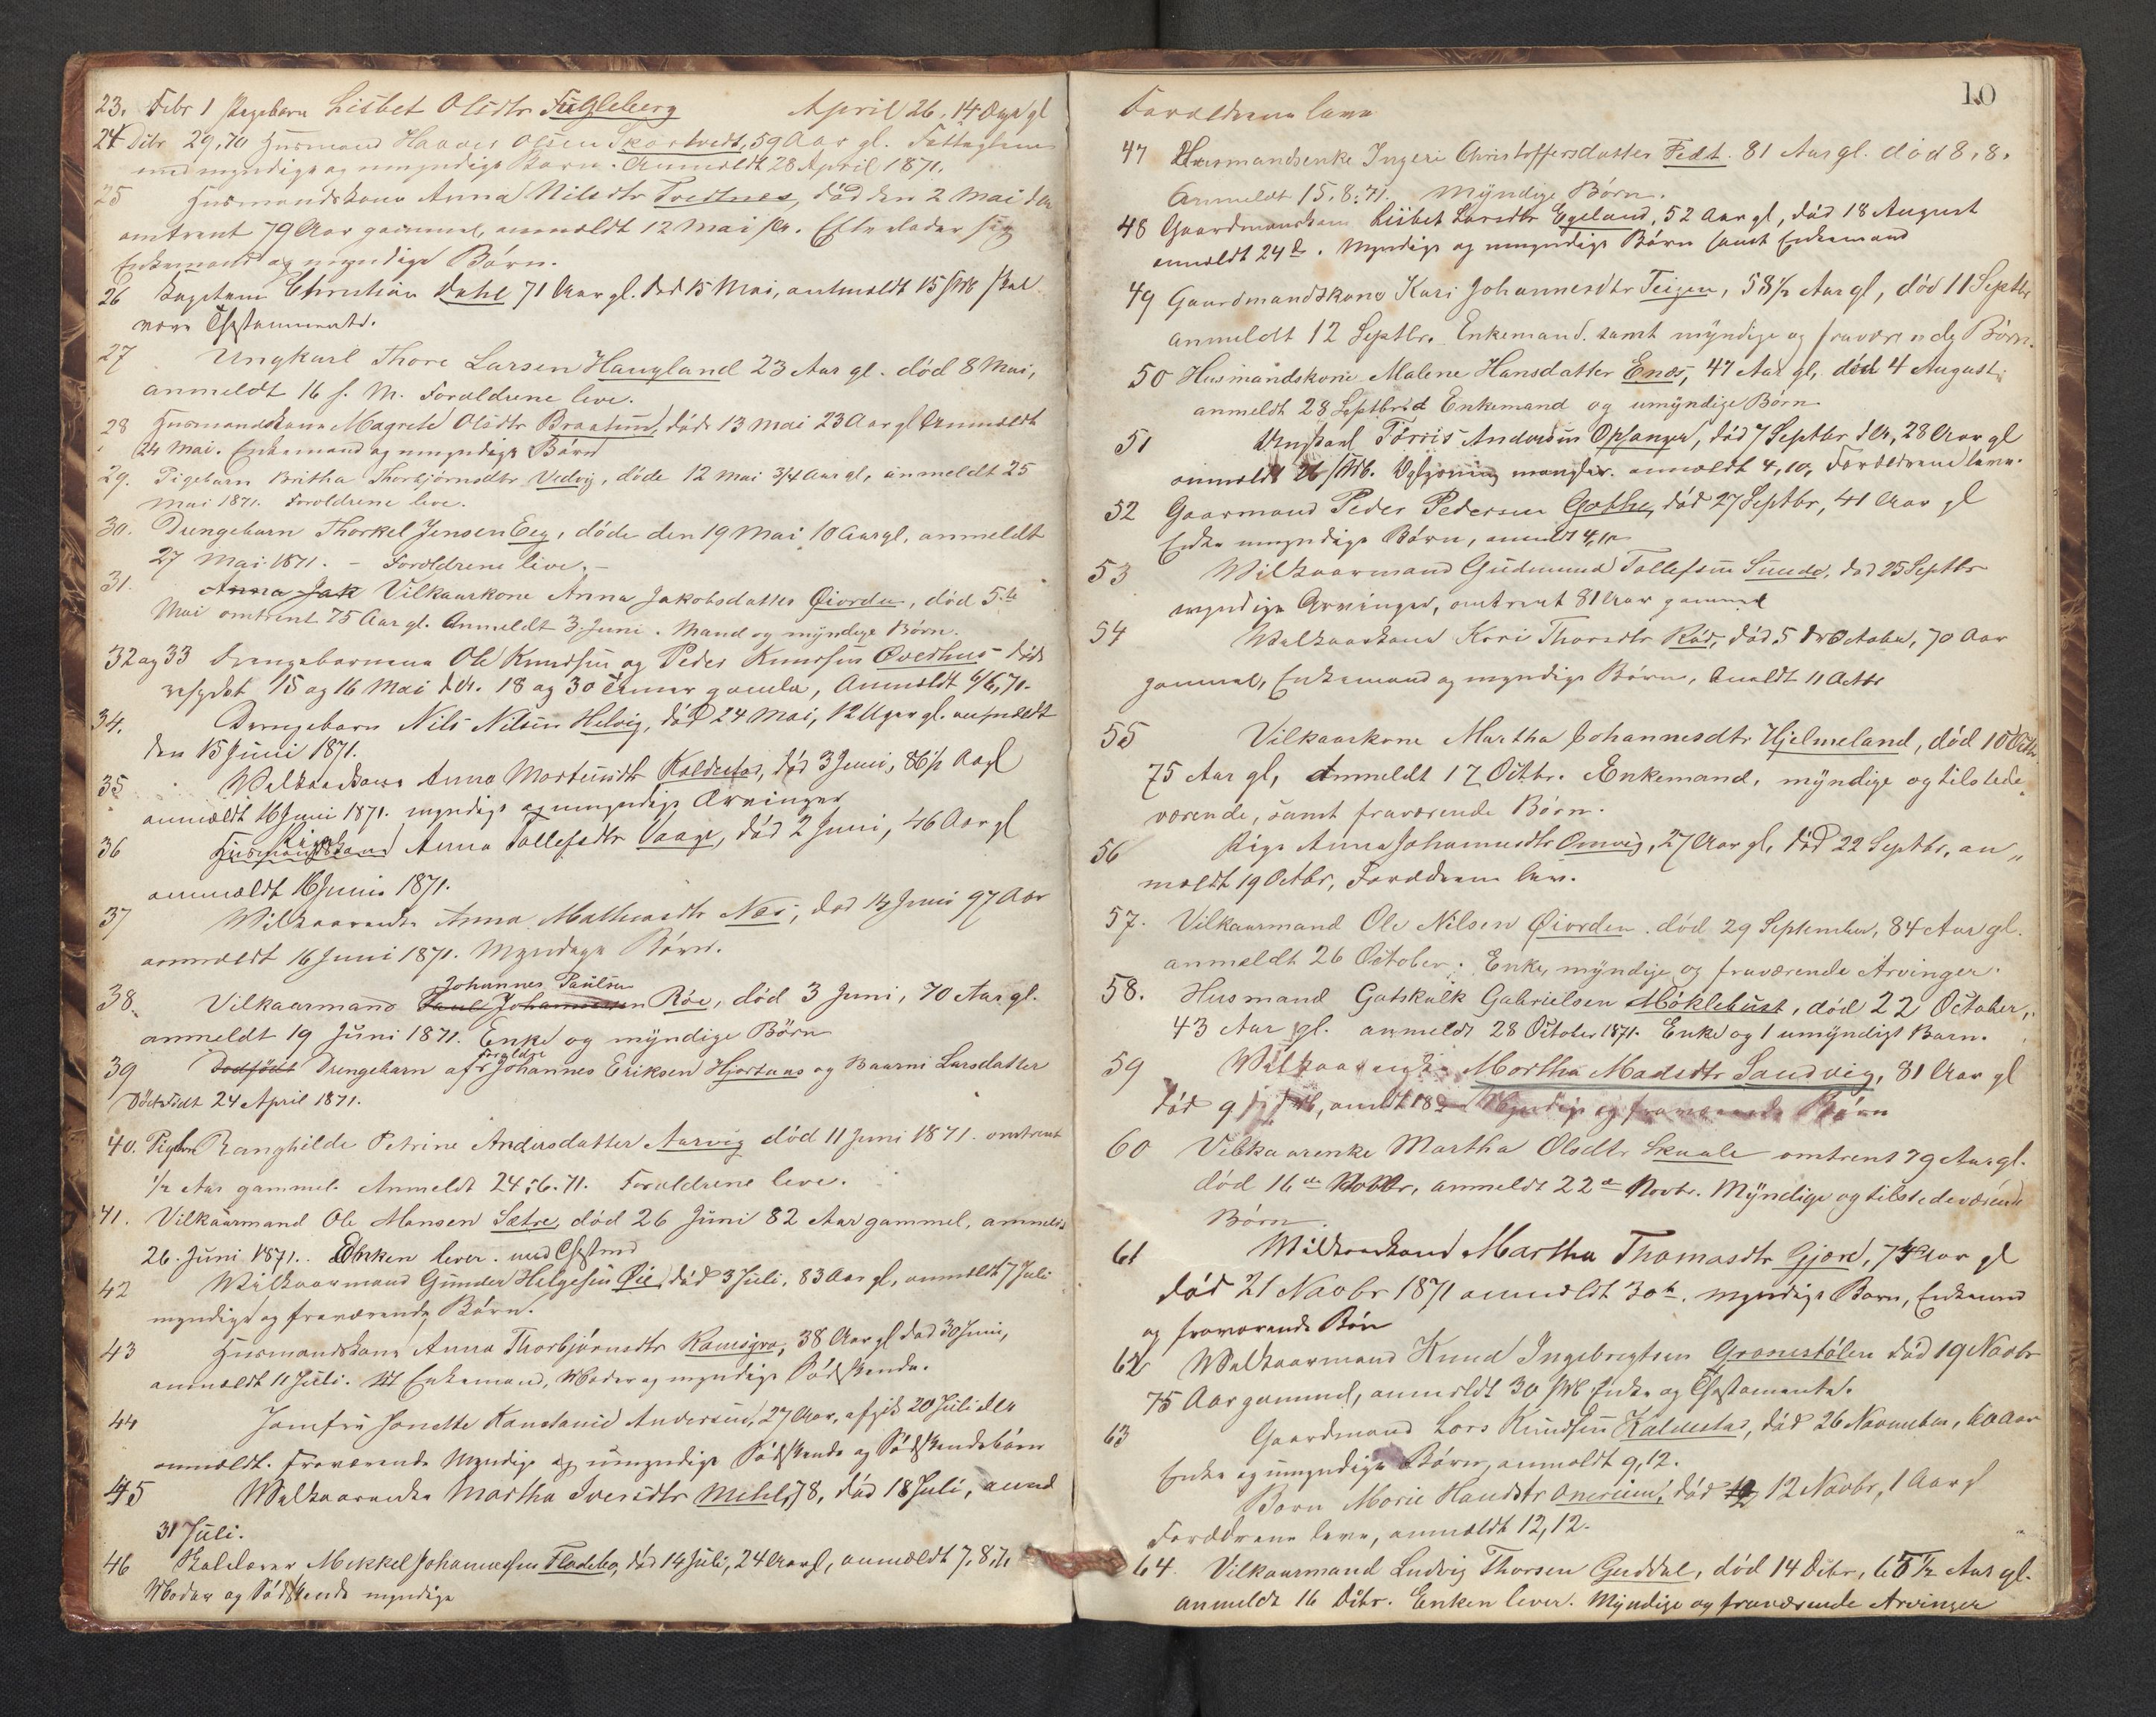 23. Febr 1 Pigebarn Lisbet Olsdtr Fugleberg April 26, 14 Dage gl
24 Dcbr 29, 70 Husmand Haaver Olsen Skartvedt, 59 Aar gl.
med myndige og umyndige Børn. Anmeldt 28 April 1871.
25 Husmandskone Anna Nilsdtr Tvedtnes, død den 2 Mai
omtrent 79 Aar gammel, anmeldt 12 Mai. Efterlader sig
Enkemand og myndige Børn.
26 Christian Dahl 71 Aar gl. død 15 Mai, anmeldt 15
være Testamente.
27 Ungkarl Thore Larsen Haugland 23 Aar gl. død 8 Mai,
anmeldt 16 s. M. Forældrene leve.
28 Husmandskone Magrete Olsdtr Braatun, døde 13 Mai 23 Aar gl Anmeldt
24 Mai. Enkemand og umyndige Børn
29. Pigebarn Britha Thorbjørnsdtr Vedvig, døde 12 Mai 3/4 Aar gl, anmeldt 25
Mai 1871. Forældrene leve.
30. Drengebarn Thorkel Jensen Eeg, døde den 19 Mai 10 Aar gl, anmeldt
27 Mai 1871. – Forældrene leve. –
31. Anna Jak Vilkaarkone Anna Jakobsdatter Øiorden, død 5te
Mai omtrent 75 Aar gl. Anmeldt 3 Juni. Mand og myndige Børn.
32 og 33 Drengebørnene Ole Knudsen og Peder Knudsen Overhus døde
15 og 16 Mai d.A. 18 og 30 Timer gamle, Anmeldt 6/6, 71.
34. Drengebarn Nils Nilsen Helvig, død 24 Mai, 12 Uger gl. anmeldt
den 15 Juni 1871.
35 Vilkaarkone Anna Mortensdtr Kaldestad, død 3 Juni, 86 1/2 Aar gl
anmeldt 16 Juni 1871. myndige og umyndige Arvinger
Pige
36 Husmandskone Anna Tollefsdtr Vaage, død 2 Juni, 46 Aar gl
anmeldt 16 Juni 1871.
37 Vilkaarenke Anna Mathiasdtr Nes, død 14 Juni 97 Aar
anmeldt 16 Juni 1871. Myndige Børn.
Johannes Paulsen
38. Vilkaarmand Paul Johannesen Röe, død 3 Juni, 70 Aar gl.
anmeldt 19 Juni 1871. Enke og myndige Børn
Forældre
39 Dødfødt Drengebarn af Johannes Eriksen Hjortaas og Baarni Larsdatter
Dødfødt 24 April 1871.
40. Pigebn Ranghilde Petrine Andersdatter Aarvig død 11 Juni 1871. omtrent
1/2 Aar gammel. Anmeldt 24.6.71. Forældrene leve.
41. Vilkaarmand Ole Monsen Sætre, død 26 Juni 82 Aar gammel, anmeldt
26. Juni 1871. Enken lever.
42 Vilkaarmand Gunder Helgesen Øie, død 3 Juli, 83 Aar gl, anmeldt 7 Juli
myndige og fraværende Børn.
43 Husmandskone Anna Thorbjørnsdtr Ramsgrø, 38 Aar gl død 30 Juni,
anmeldt 11 Juli. Enkemand, Moder og myndige Sødskende.
44 Jomfru Janette Konstance Andersen, 27 Aar, afgik 20 Juli d.A.
anmeldt. Fraværende Myndige og umyndige Sødskende og Sødskendebørn
45 Vilkaarenke Martha Iversdtr Mehl, 78, død 18 Juli, anmd
31 Juli.
46 Mekkel Johannesen Fladebø, død 14 Juli, 24 Aar gl, anmeldt 7,8,71
Moder og Sødskende myndige
10
Forældrene leve
47 Husmandsenke Ingeri Christoffersdatter Fedt. 81 Aar gl. død 8.8.
Anmeldt 15.8.71. Myndige Børn.
48 Gaardmandskone Lisbet Larsdtr Egeland, 52 Aar gl, død 18 August
anmeldt 24de. Myndige og umyndige Børn samt Enkemand
49 Gaardmandskone Kari Johannesdtr Teigen, 58 1/2 Aar gl, død 11 Septbr
anmeldt 12 Septbr. Enkemand samt myndige og fraværende Børn.
50 Husmandskone Malene Hansdatter Enæs, 47 Aar gl. død 4 August
anmeldt 28 Septbr Enkemand og umyndige Børn
51 Ungkarl Torris Andersen Opsanger, død 7 Septbr d.A., 28 Aar gl
anmeldt 26. mangler. anmeldt 4,10, Forældrene leve.
52 Gaarmand Peder Pedersen Gøthe, død 27 Septbr, 41 Aar gl
Enke umyndige Børn, anmeldt 4,10
53 Vilkaarmand Gudmund Tollefsen Sunde, død 25 Septbr
myndige Arvinger, omtrent 81 Aar gammel
54 Vilkaarkone Kari Thorsdtr Röd, død 5 October, 70 Aar
gammel, Enkemand og myndige Børn, Anmeldt 11 Octbr
55 Vilkaarkone Martha Johannesdtr Hjelmeland, død 10 Octbr.
75 Aar gl, Anmeldt 17 Octbr. Enkemand, myndige og tilstede„
værende, samt fraværende Børn.
56 Pige Anna Johannesdtr Omvig, 27 Aar gl, død 22 Septbr, an„
meldt 19 Octbr, Forældrene leve.
57. Vilkaarmand Ole Nilsen Øiorden. død 29 September, 84 Aar gl.
anmeldt 26 October. Enke, myndige og fraværende Arvinger.
58. Husmand Gotskalk Gabrielsen Møklebust, død 22 October,
43 Aar gl. anmeldt 28 October 1871. Enke og 1 umyndigt Barn.
59 Vilkaarenke Martha Madsdtr Sandvig, 81 Aar gl
død 9, anmeldt 18de Myndige og fraværende Børn
60 Vilkaarenke Martha Olsdtr Skaale omtrent 79 Aar gl.
død 16de Novbr, anmeldt 22de Novbr. Myndige og tilstedeværende
Børn.
61 Vilkaarkone Martha Thomasdtr Gjøre, Aar gl
død 21 Novbr 1871 anmeldt 30te. myndige Børn, Enkemand
og fraværende Børn
62 Vilkaarmand Knud Ingebregtsen Gronestølen død 19 Novbr
75 Aar gammel, anmeldt 30 Enke og Testamente.
63 Gaardmand Lars Knudsen Kaldestad, død 26 November, 60 Aar
Enke og umyndige Børn, anmeldt 9,12.
Barn Marie Hansdtr død 12 Novbr, 1 Aar gl
Forældrene leve, anmeldt 12,12.
64. Vilkaarmand Ludvig Thorsen Guddal, død 14 Dcbr, 65 1/2 Aar gl.
anmeldt 16 Dcbr. Enken lever. Myndige og fraværende Arvinger